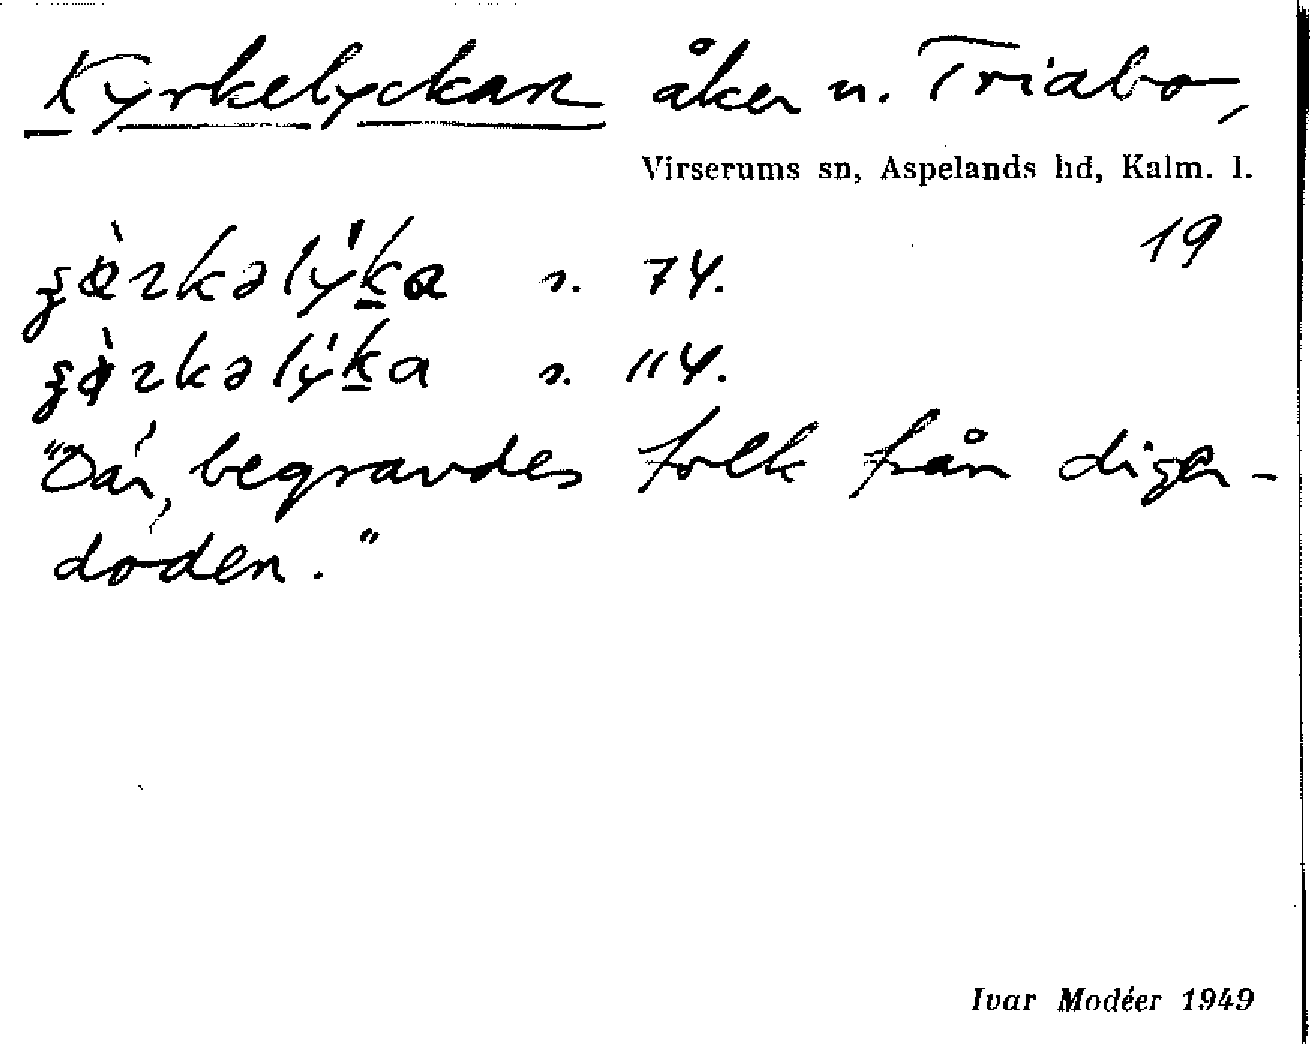 Kyrkelyckan åker n. Triabo,
Virserums sn, Aspelands hd, Kalm. l.
19
s. 74.
s. 114.
"Där, begravdes folk från diger-
döden."
Ivar Modéer 1949